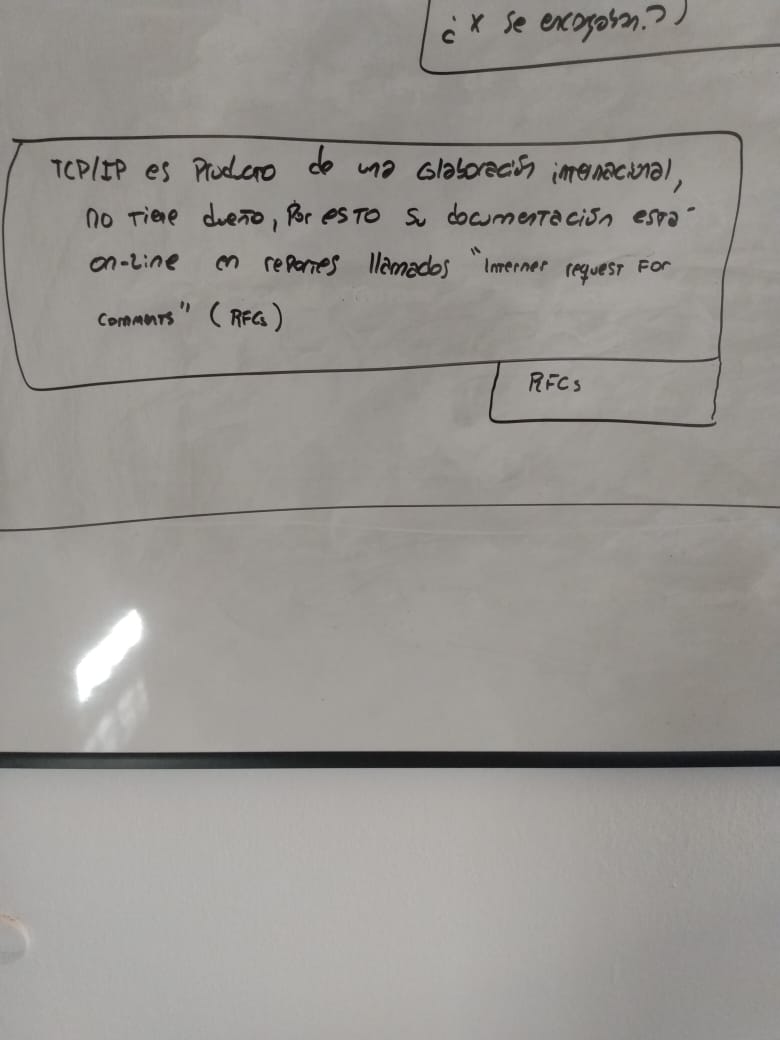 ¿ x se
TCP/IP es Producto de una colaboración internacional,
no tiene dueño, por esto su documentación está
on-line en reportes llamados "Internet request For
comments" (RFCs)
RFCs